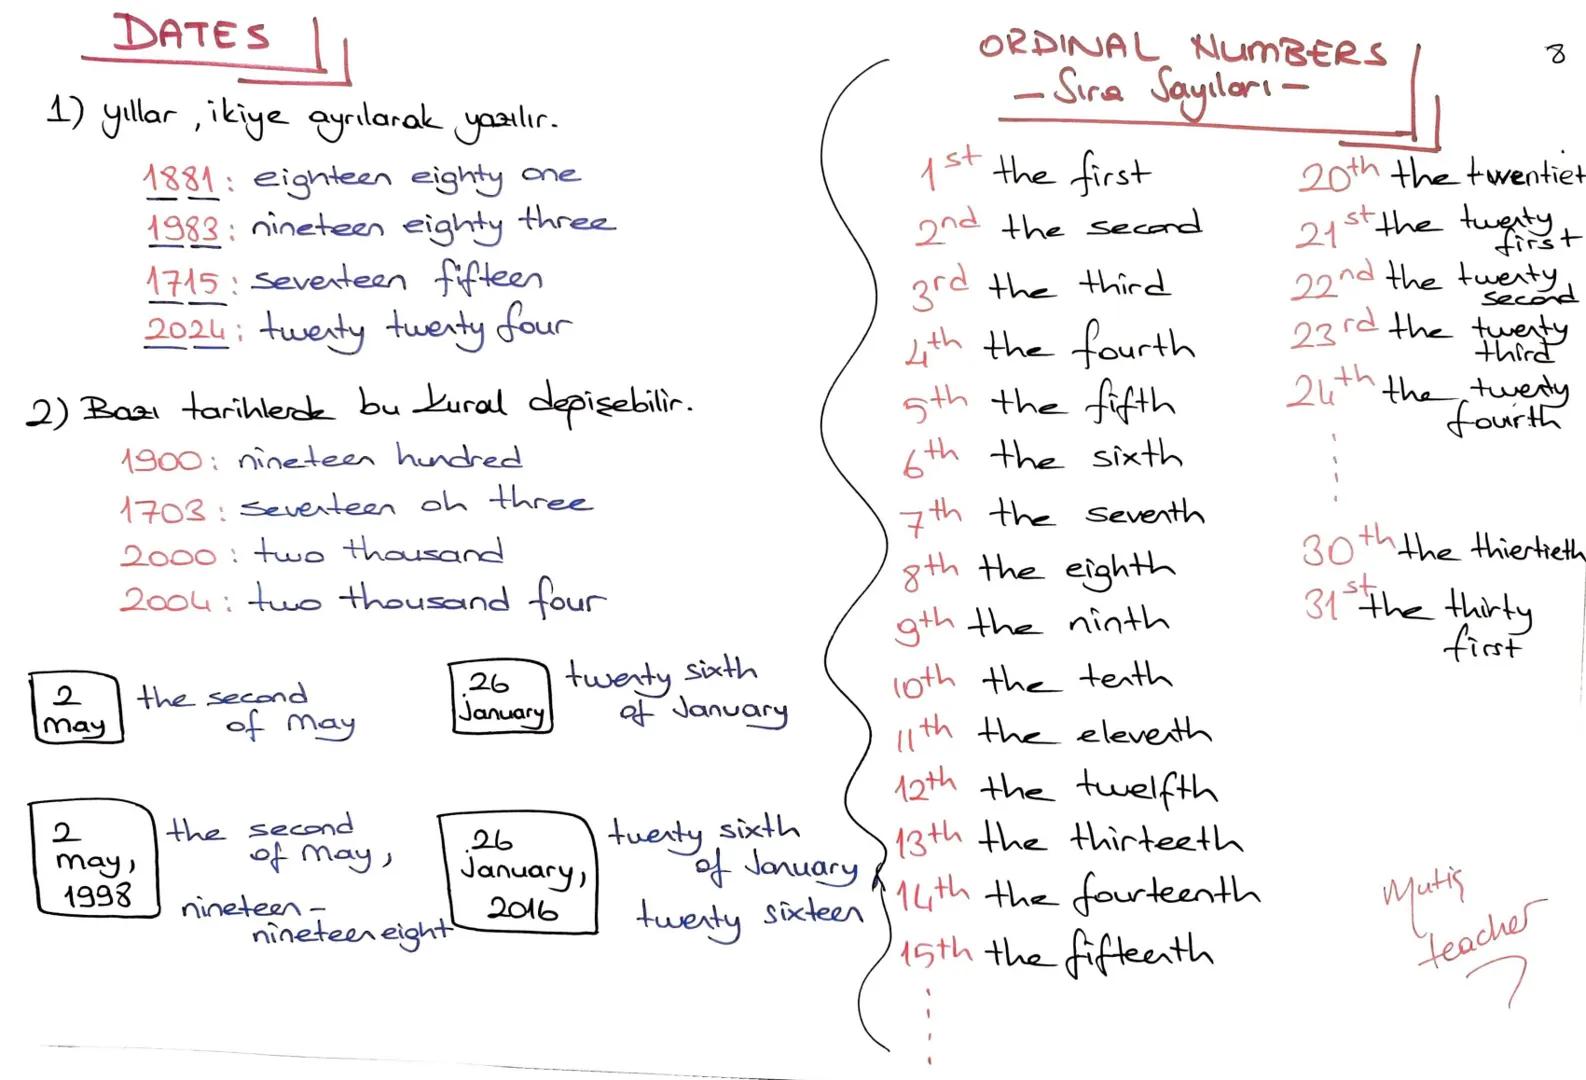 DATES
1) yıllar, ikiye ayrılarak yazılır.
1881: eighteen eighty one
1983: nineteen eighty three
1715: seventeen fifteen
2024: twenty twenty four
2) Bazı tarihlerde bu kural değişebilir.
1900: nineteen hundred
1703: seventeen oh three
2000: two thousand
2004: two thousand four
2
may
the second
of may
26
January
twenty sixth
of January
2
may,
1998
the second
of may,
nineteen-
nineteen eight
26
January,
2016
twenty sixth
of January
twenty sixteen
ORDINAL NUMBERS
- Sıra Sayıları -
8
1st the first
2nd the second
3rd the third
4th the fourth
5th the fifth
6th the sixth
7th the seventh
8th the eighth
9th the ninth
10th the tenth
11th the eleventh
12th the twelfth
13th the thirteeth
14th the fourteenth
15th the fifteenth
20th the twentiet
21st the twenty
first
22nd the twenty
second
23rd the twenty
third
24th the twenty
fourth
30th the thiertieth
31st the thirty
first
teacher